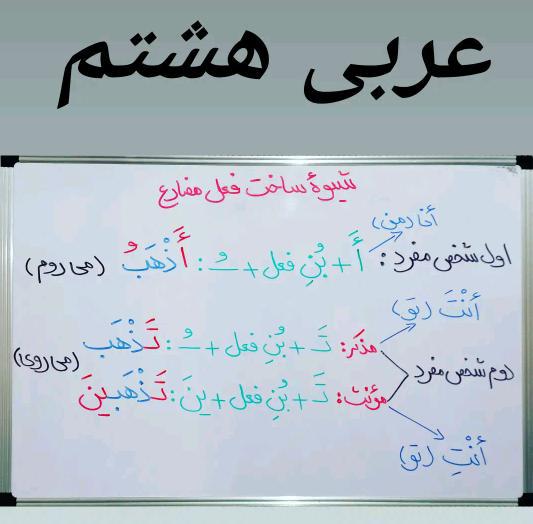 عربی هشتم
شیوهٔ ساخت فعل مضارع
أنا (من)
اول شخص مفرد: أَ + بُنِ فعل + ـُ : أَذْهَبُ (می روم)
أنْتَ (تو)
مذکر: تَـ + بُنِ فعل + ـُ : تَذْهَبُ
دوم شخص مفرد (می روی)
مؤنث: تَـ + بُنِ فعل + ینَ : تَذْهَبینَ
أنْتِ (تو)